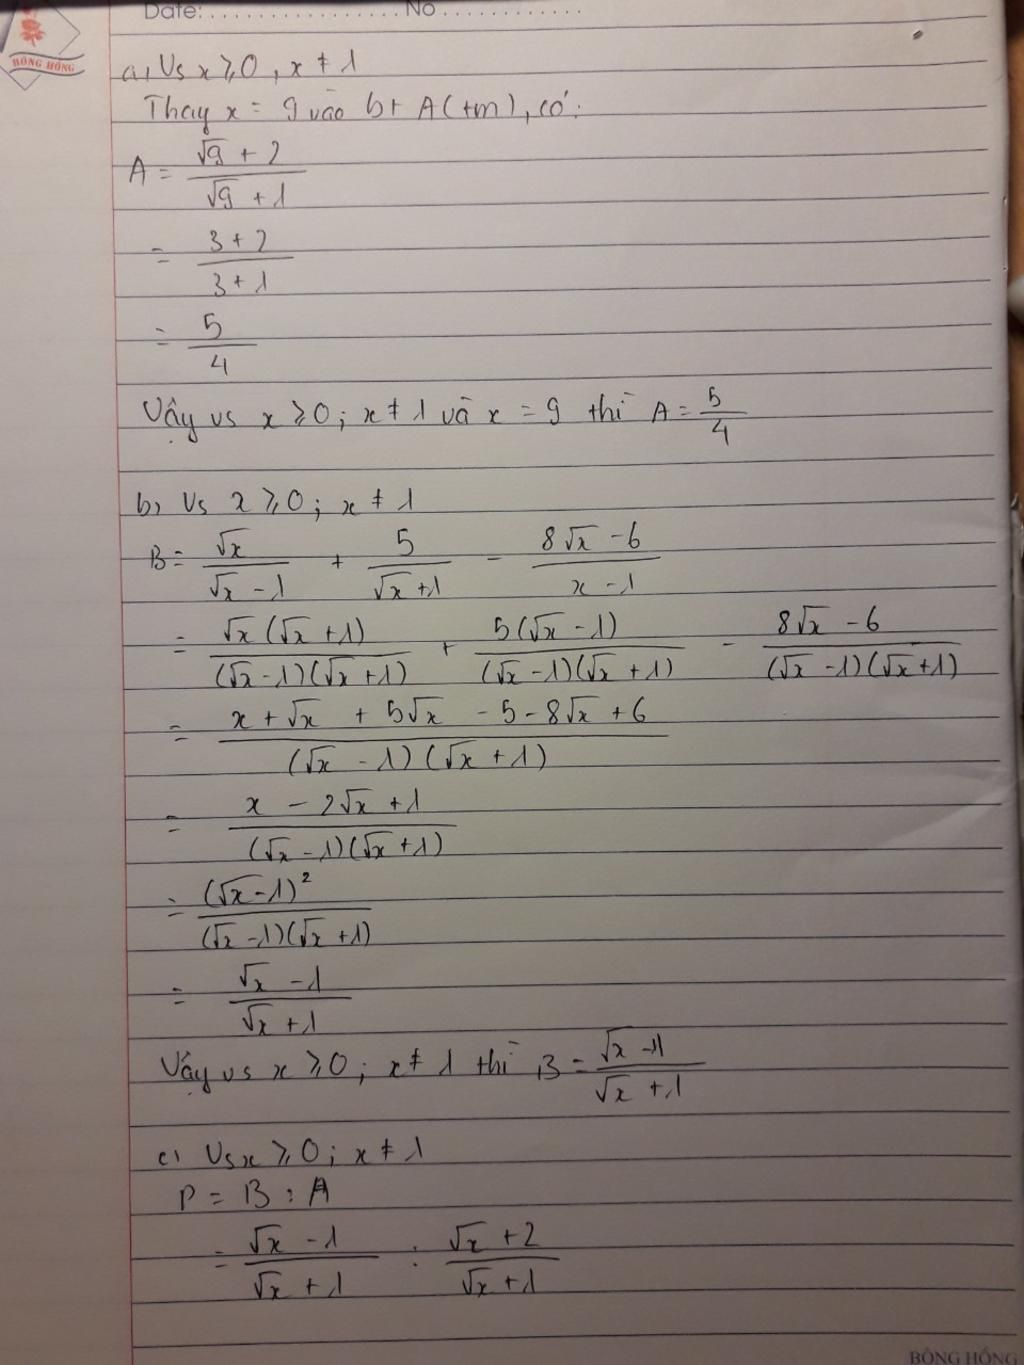 Date:....................No.............
BÔNG HỒNG
a, Vs x ⩾ 0, x ≠ 1
Thay x = 9 vào bt A (tm), có:
A = (√9 + 2)/(√9 + 1)
= (3 + 2)/(3 + 1)
= 5/4
Vậy vs x ⩾ 0; x ≠ 1 và x = 9 thì A = 5/4
b, Vs x ⩾ 0; x ≠ 1
B = √x/(√x - 1) + 5/(√x + 1) - (8√x - 6)/(x - 1)
= √x(√x + 1)/((√x - 1)(√x + 1)) + 5(√x - 1)/((√x - 1)(√x + 1)) - (8√x - 6)/((√x - 1)(√x + 1))
= (x + √x + 5√x - 5 - 8√x + 6)/((√x - 1)(√x + 1))
= (x - 2√x + 1)/((√x - 1)(√x + 1))
= (√x - 1)²/((√x - 1)(√x + 1))
= (√x - 1)/(√x + 1)
Vậy vs x ⩾ 0; x ≠ 1 thì B = (√x - 1)/(√x + 1)
c, Vs x ⩾ 0; x ≠ 1
P = B : A
= (√x - 1)/(√x + 1) : (√x + 2)/(√x + 1)
BÔNG HỒNG